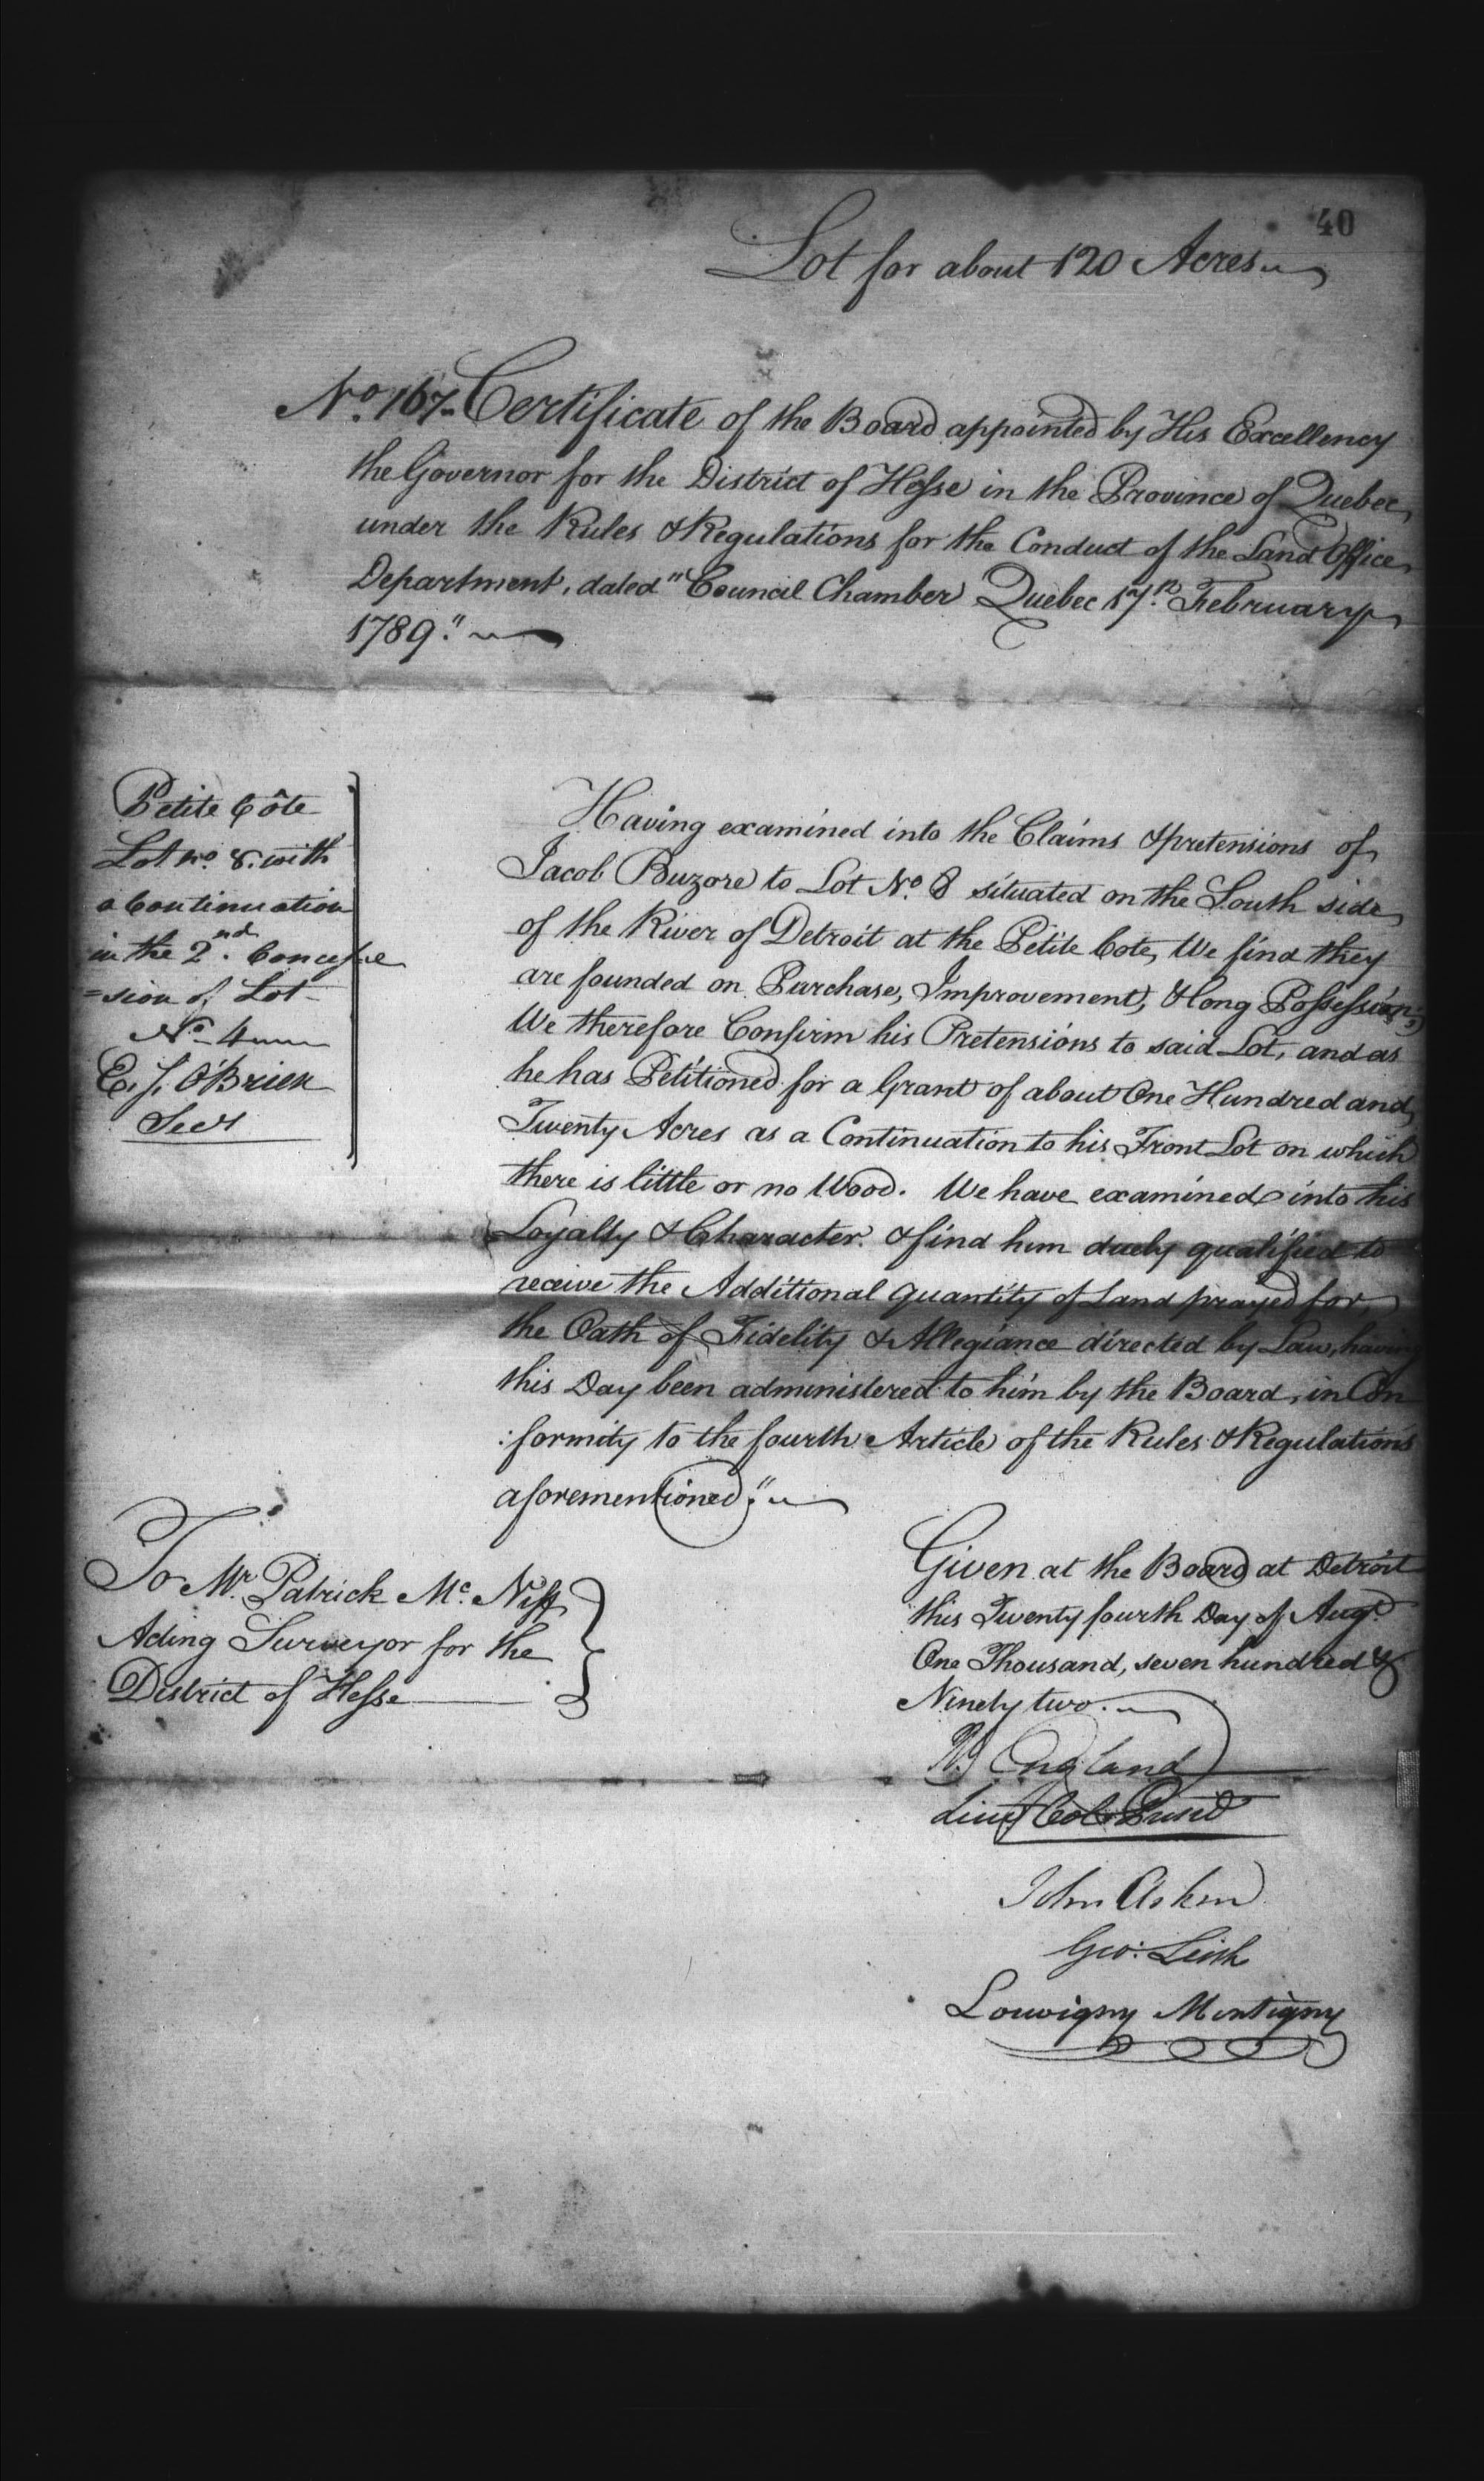 40
Lot for about 120 Acres
No. 167. Certificate of the Board appointed by His Excellency
the Governor for the District of Hesse in the Province of Quebec,
under the Rules & Regulations for the Conduct of the Land Office
Department, dated "Council Chamber Quebec 17th. February
1789."
Petite Côte
Lot no. 8. with
a Continuation
in the 2nd. Conces
=sion of Lot
No. 4
E. J. O'Brien
Secy
Having examined into the Claims & pretensions of
Jacob Buzore to Lot No. 8 situated on the South side
of the River of Detroit at the Petite Cote, We find they
are founded on Purchase, Improvement, & long Possession;
We therefore Confirm his Pretensions to said Lot, and as
he has Petitioned for a Grant of about One Hundred and
Twenty Acres as a Continuation to his Front Lot on which
there is little or no Wood. We have examined into his
Loyalty & Character. & find him duely qualified to
receive the Additional quantity of Land prayed for,
the Oath of Fidelity & Allegiance directed by Law, having
this Day been administered to him by the Board, in Con
:formity to the fourth Article of the Rules & Regulations
aforementioned."
To Mr. Patrick Mc. Niff
Acting Surveyor for the
District of Hesse
Given at the Board at Detroit
this Twenty fourth Day of Augt.
One Thousand, seven hundred &
Ninety two.
R. England
Lieut Col. & Presd
John Askin
Geo: Leith
Louvigny Montigny